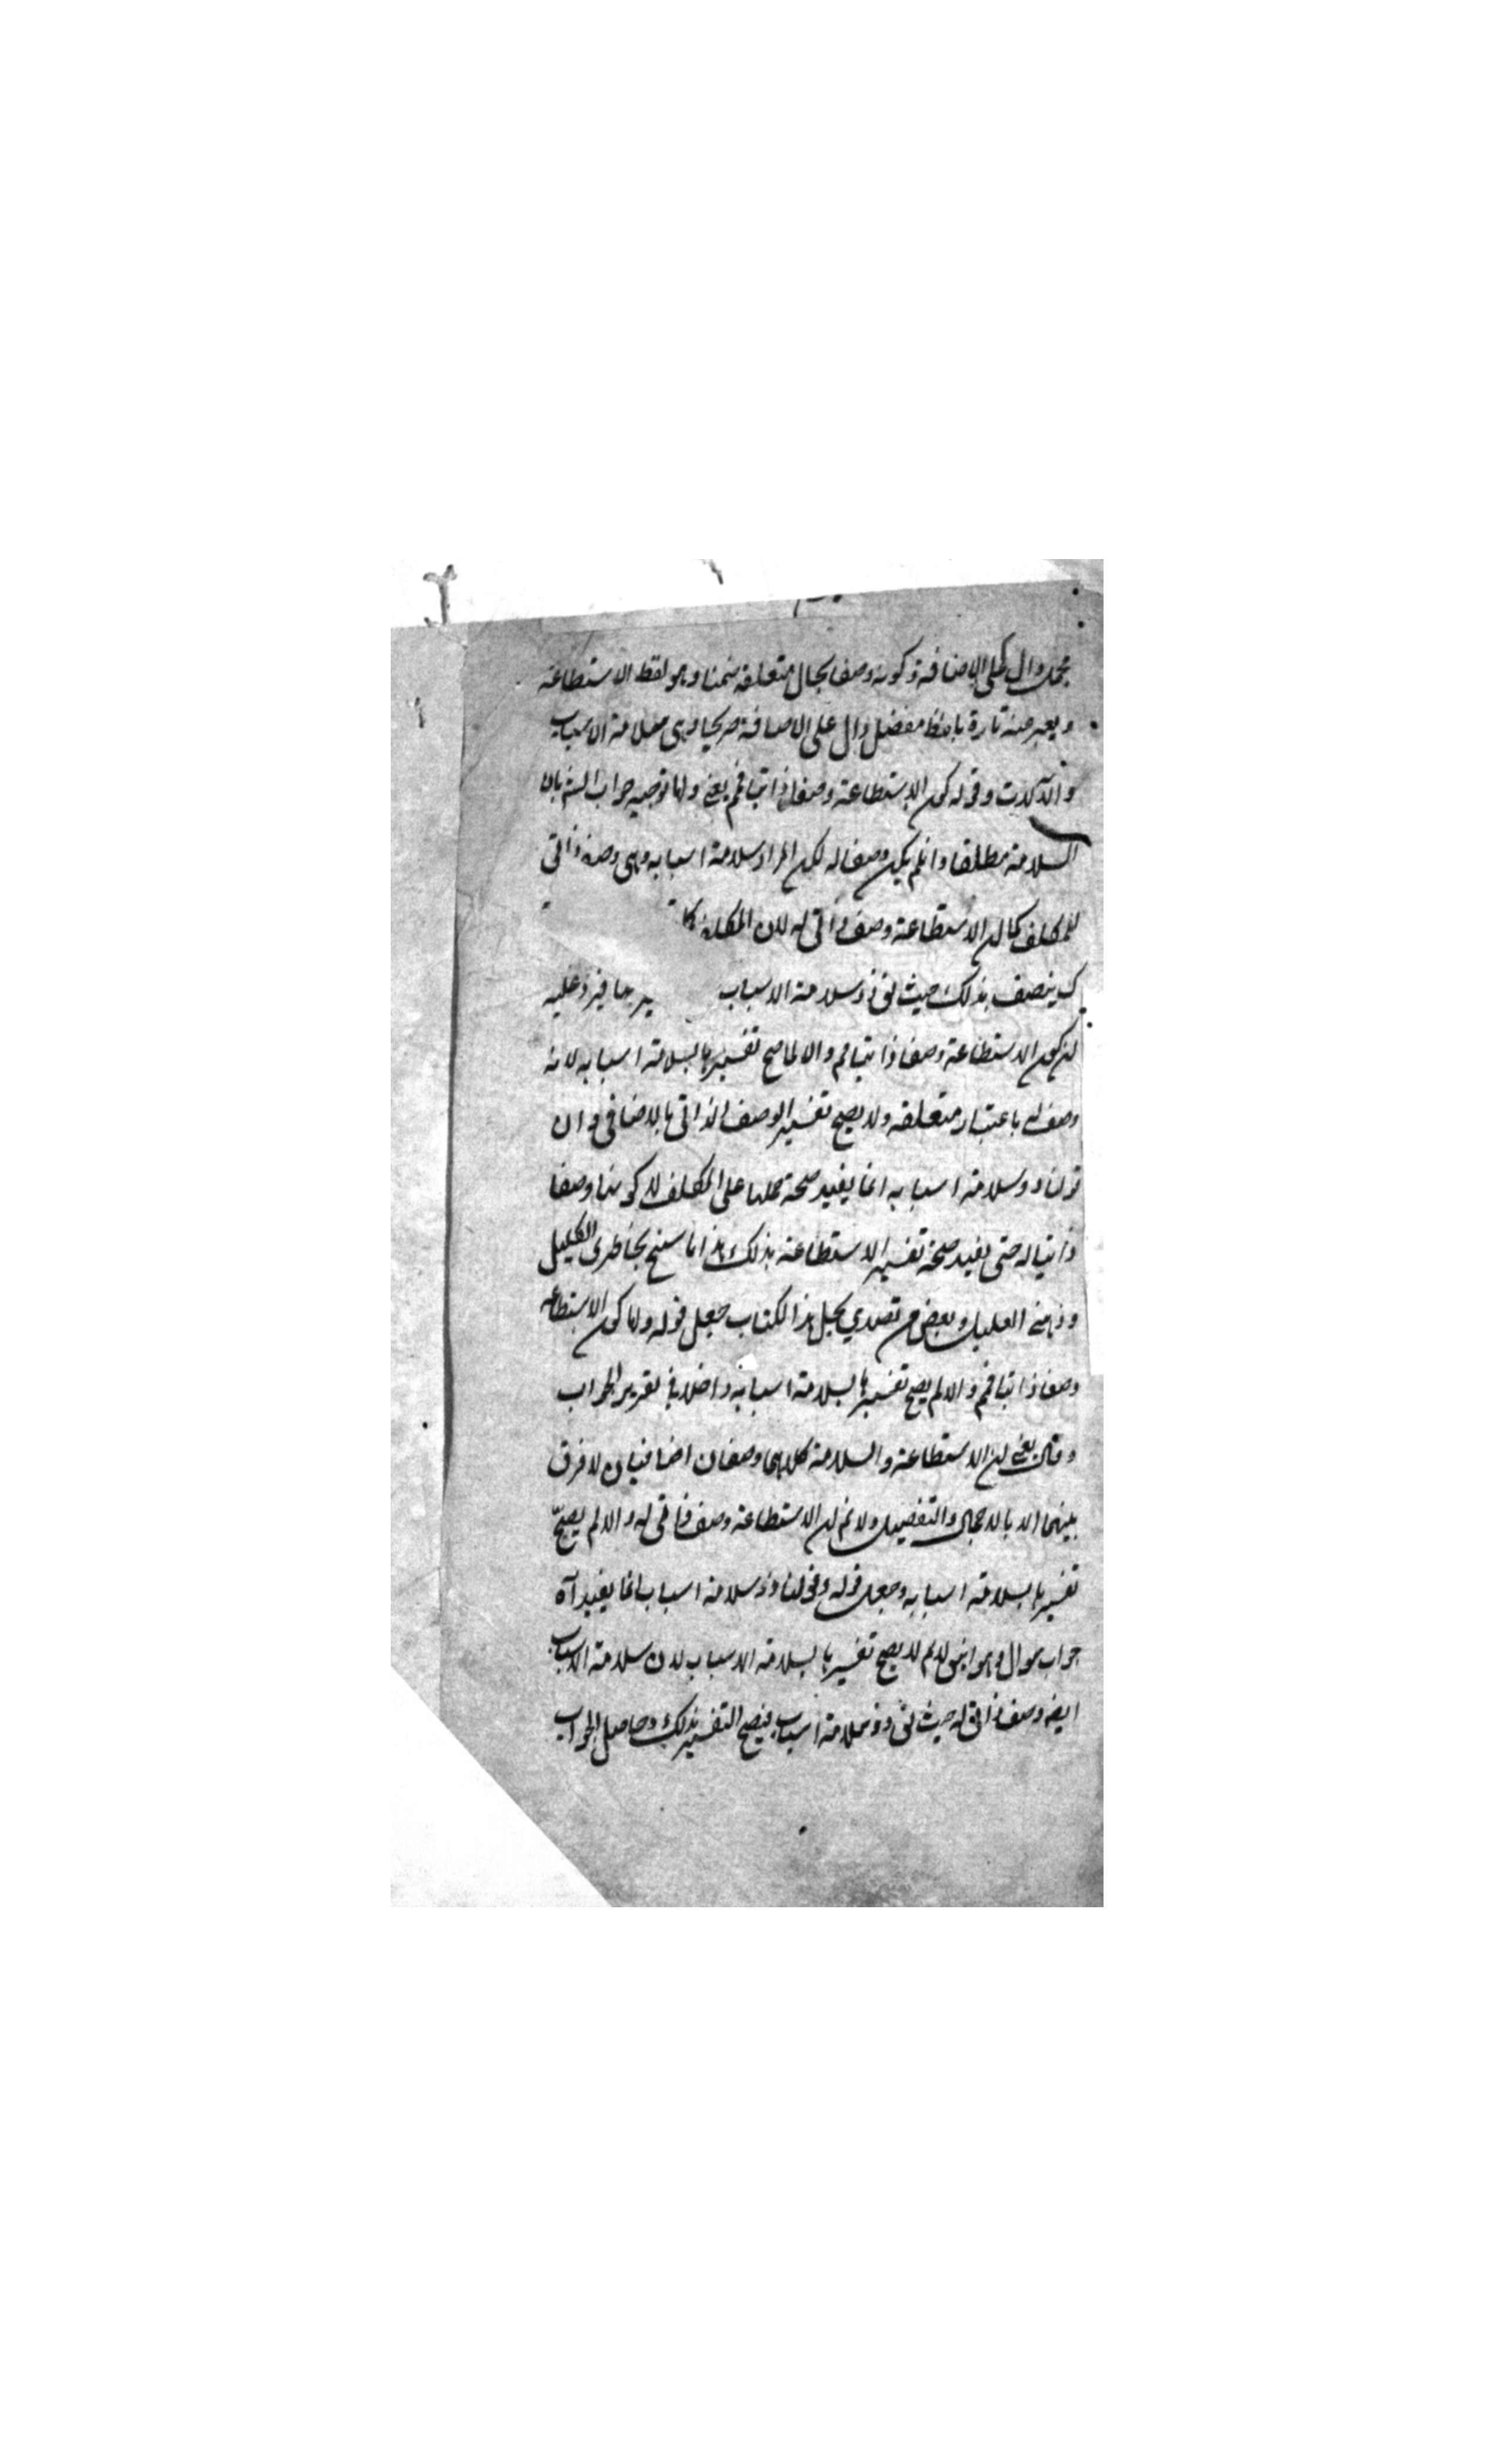 مجمل دال على الاضافة و كونه وصفا بحال متعلقه ضمنا وهو لفظ الاستطاعة
و يعبر عنه تارة بلفظ مفصل دال على الاضافة صريحا وهى سلامة الاسباب
والآلات و قوله كون الاستطاعة وصفا ذاتيا فم يعنى ولها توجيه جواب الشه بان
السلامة مطلقا وانلم يكن وصفا له لكن المراد سلامة اسبابه وهى وصف ذاتى
للمكلف كما ان الاستطاعة وصف ذاتى له لان المكلف كا
ك يتصف بذلك حيث يق ذو سلامة الاسباب بها فيرد عليه
ان كون الاستطاعة وصفا ذاتيا مم والا لما صح تفسيرها بسلامة اسبابه لانه
وصف له باعتبار متعلقه ولا يصح تفسير الوصف الذاتى بالاضافى و ان
قولنا ذو سلامة اسبابه انما يفيد صحة حملها على المكلف لا كونها وصفا
ذاتيا له حتى يفيد صحة تفسير الاستطاعة بذلك هذا ما سنح بخاطرى الكليل
وذهنى العليل وبعض من تصدي بحل هذا الكتاب جعل قوله ولها كون الاستطاعة
وصفا ذاتيا فم والا لم يصح تفسيرها بسلامة اسبابه داخلا فى تقرير الجواب
وقال يعنى ان الاستطاعة والسلامة كلاهما وصفان اضافيان لا فرق
بينهما الا بالاجمال والتفصيل ولانم ان الاستطاعة وصف ذاتى له والا لم يصح
تفسيرها بسلامة اسبابه وجعل قوله وقولنا ذو سلامة اسباب انما يفيد آه
جواب سوال وهو انه لم لا يصح تفسيرها بسلامة الاسباب لان سلامة الاسباب
ايضه وصف ذاتى له حيث يق ذو سلامة اسباب فيصح التفسير بذلك وحاصل الجواب